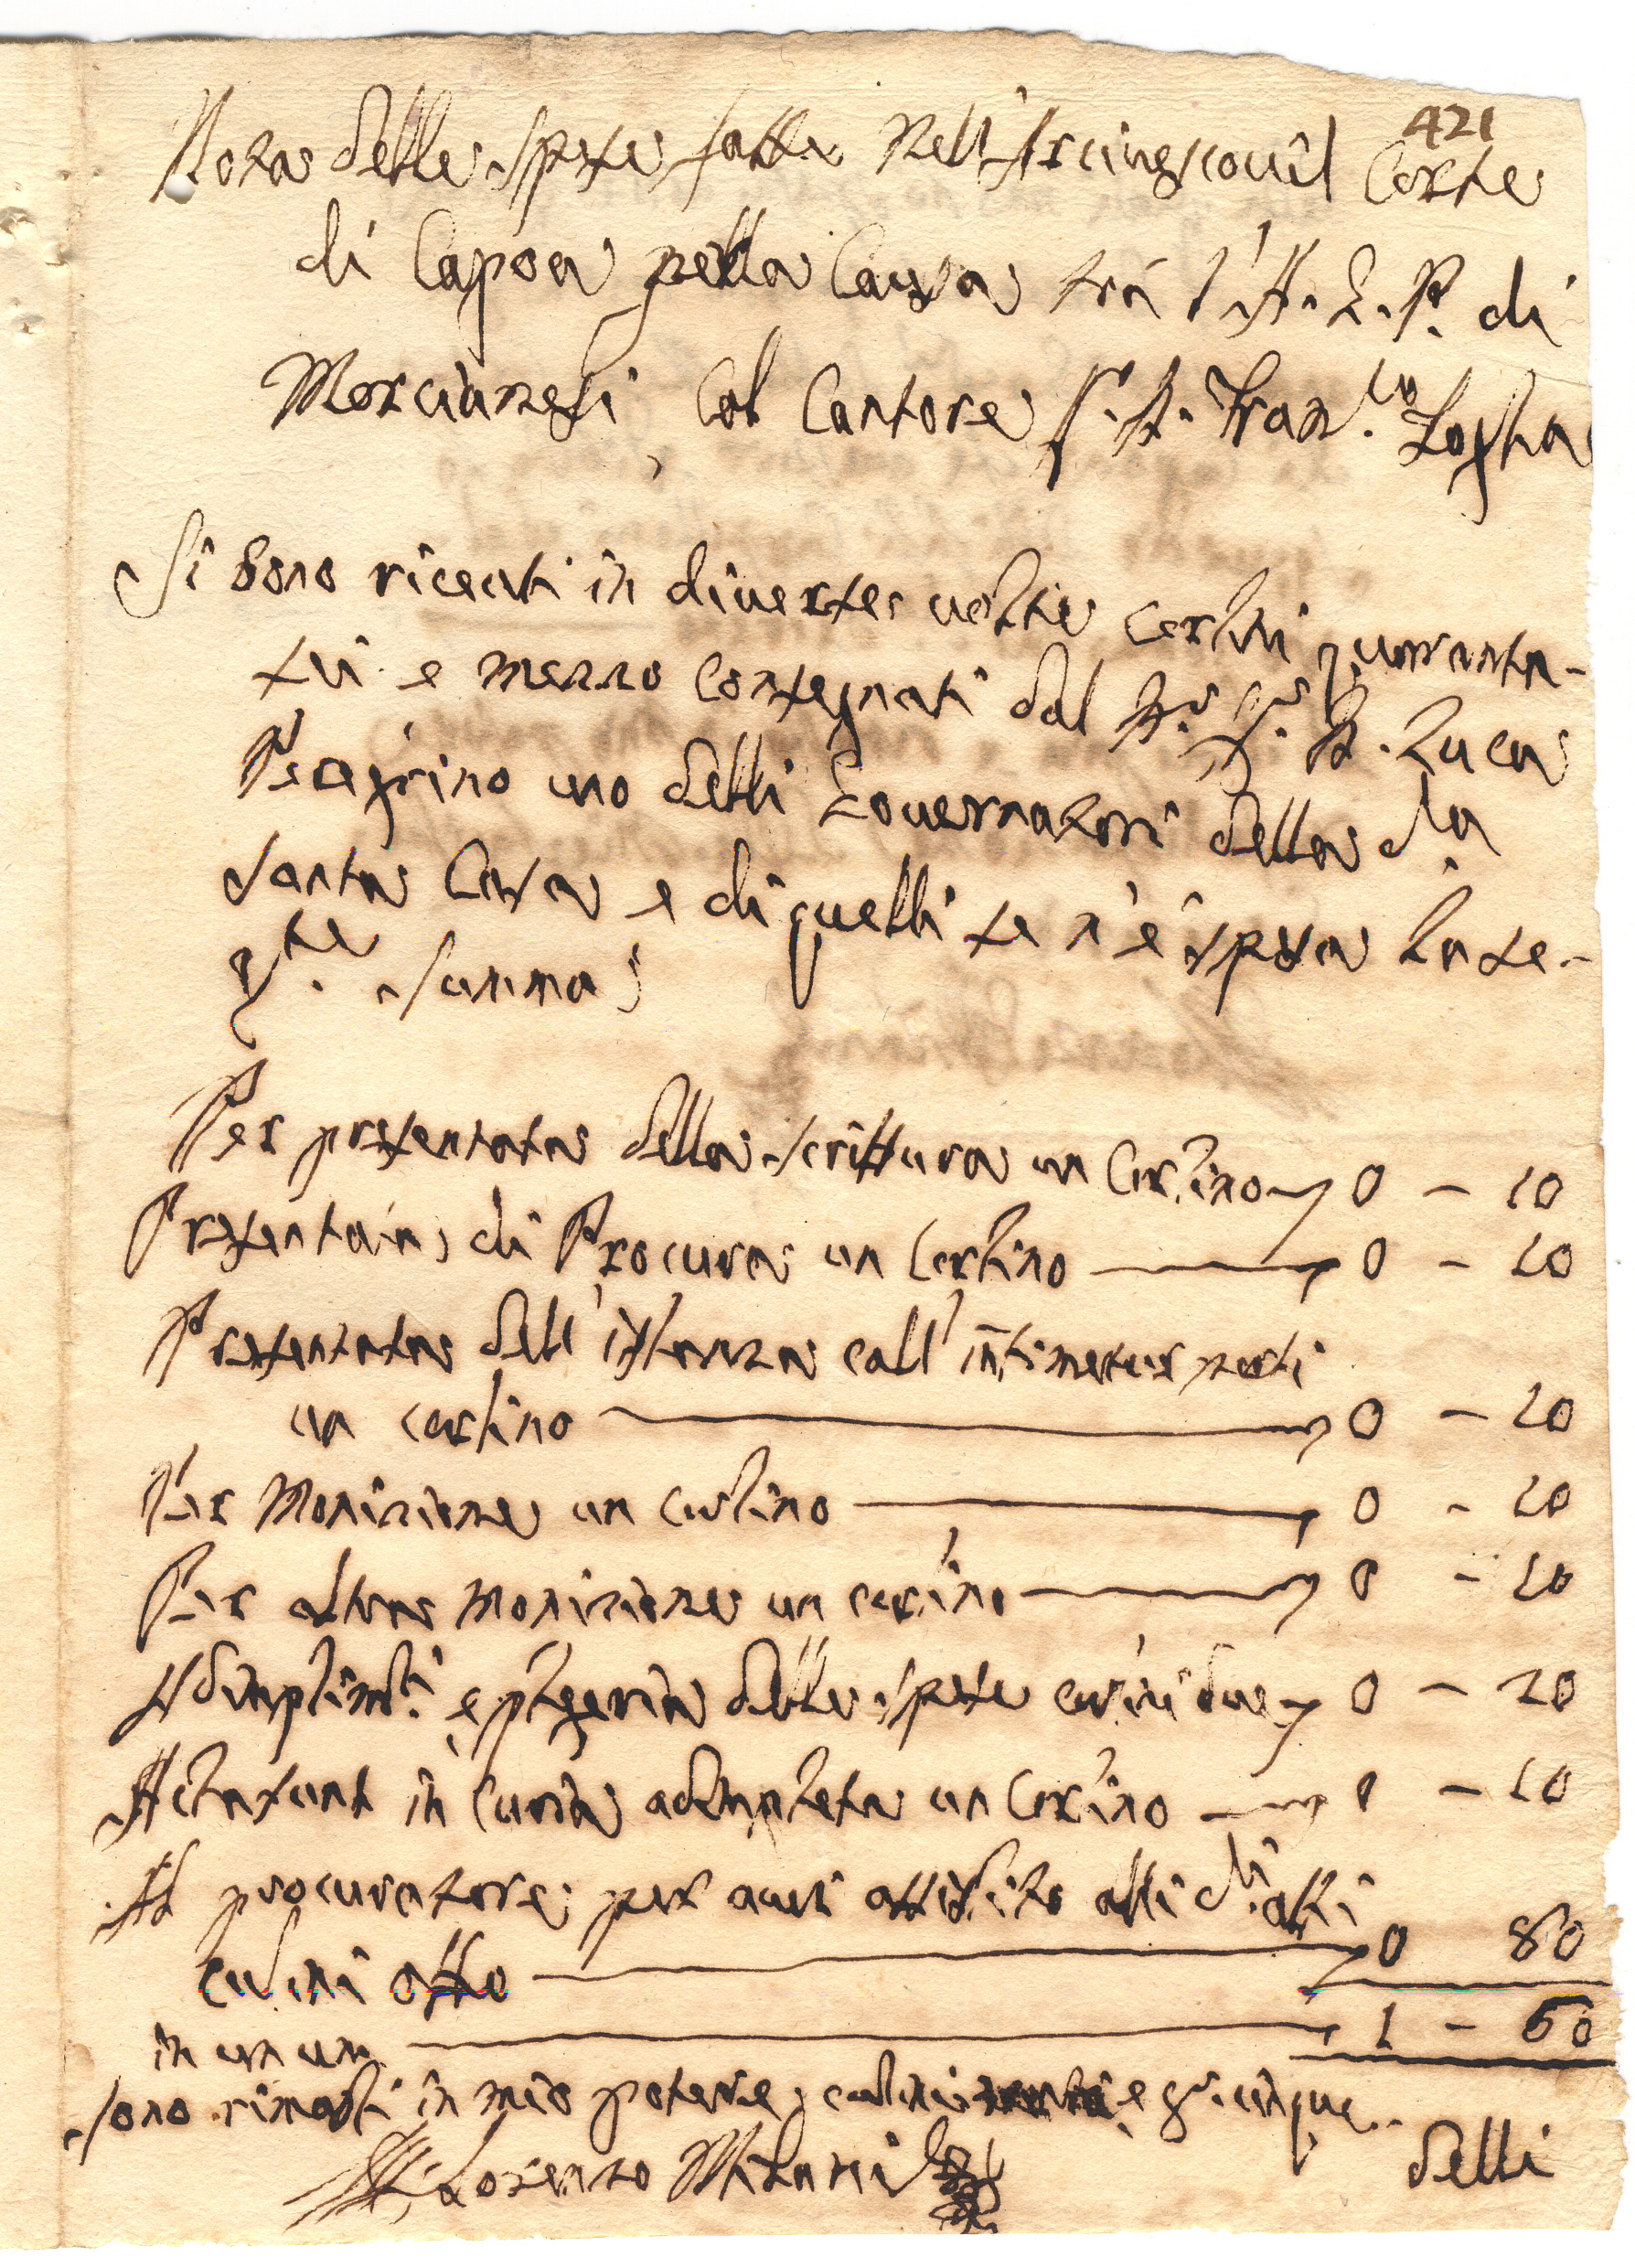 421
Nota delle spese fatte nell'Arcivescovil Corte
di Capoa nella Causa trà l'A. G. P. di
Marcianesi, col Cantore S.r D. Fran.co
Si sono riceuti in diuerse uolte carlini quaranta-
sei e mezzo consegnati dal D.r S.r D. Luca
Pecegrino uno delli Gouernatori della d.ta
Santa Casa e di quelli se n'è spesa la se-
g.te summa;
Per presentata della scrittura un Carlino 0 - 10
Presentata di Procura un Carlino 0 - 10
Presentata dell'istanza coll' intimetur parti
un carlino 0 - 10
Per Monizione un carlino 0 - 10
Per altra monizione un carlino 0 - 10
Adimplim.ti e plegeria delle spese carlini due 0 - 20
in Curia adimpleta un Carlino 0 - 10
Al procuratore per auer assistito alli d.i atti
carlini otto 0 80
in unum 1 - 60
sono rimasti in mio potere, carlini e g.a cinque
D. Lorenzo
delli